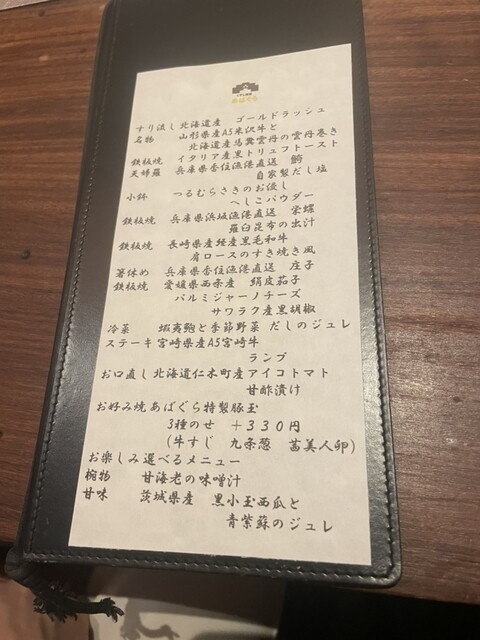 あぱぐら
すり流し 北海道産 ゴールドラッシュ
名物 山形県産A5米沢牛と
北海道産馬糞雲丹の雲丹巻き
鉄板焼 イタリア産黒トリュフトースト
天婦羅 兵庫県香住漁港直送 鱚
自家製だし塩
小鉢 つるむらさきのお浸し
へしこパウダー
鉄板焼 兵庫県浜坂漁港直送 栄螺
羅臼昆布の出汁
鉄板焼 長崎県産経産黒毛和牛
肩ロースのすき焼き風
箸休め 兵庫県香住漁港直送 庄子
鉄板焼 愛媛県西条産 絹皮茄子
パルミジャーノチーズ
サワラク産黒胡椒
冷菜 蝦夷鮑と季節野菜 だしのジュレ
ステーキ 宮崎県産A5宮崎牛
ランプ
お口直し 北海道仁木町産アイコトマト
甘酢漬け
お好み焼 あぱぐら特製豚玉
3種のせ +330円
(牛すじ 九条葱 茜美人卵)
お楽しみ選べるメニュー
椀物 甘海老の味噌汁
甘味 茨城県産 黒小玉西瓜と
青紫蘇のジュレ